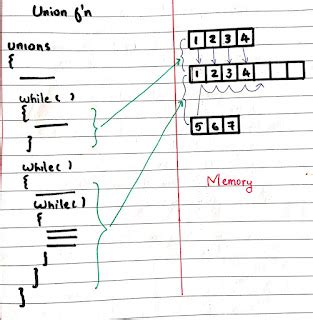 Union f'n
unions
{
while( )
{
}
while( )
{
while( )
{
}
}
}
1 2 3 4
1 2 3 4
5 6 7
Memory